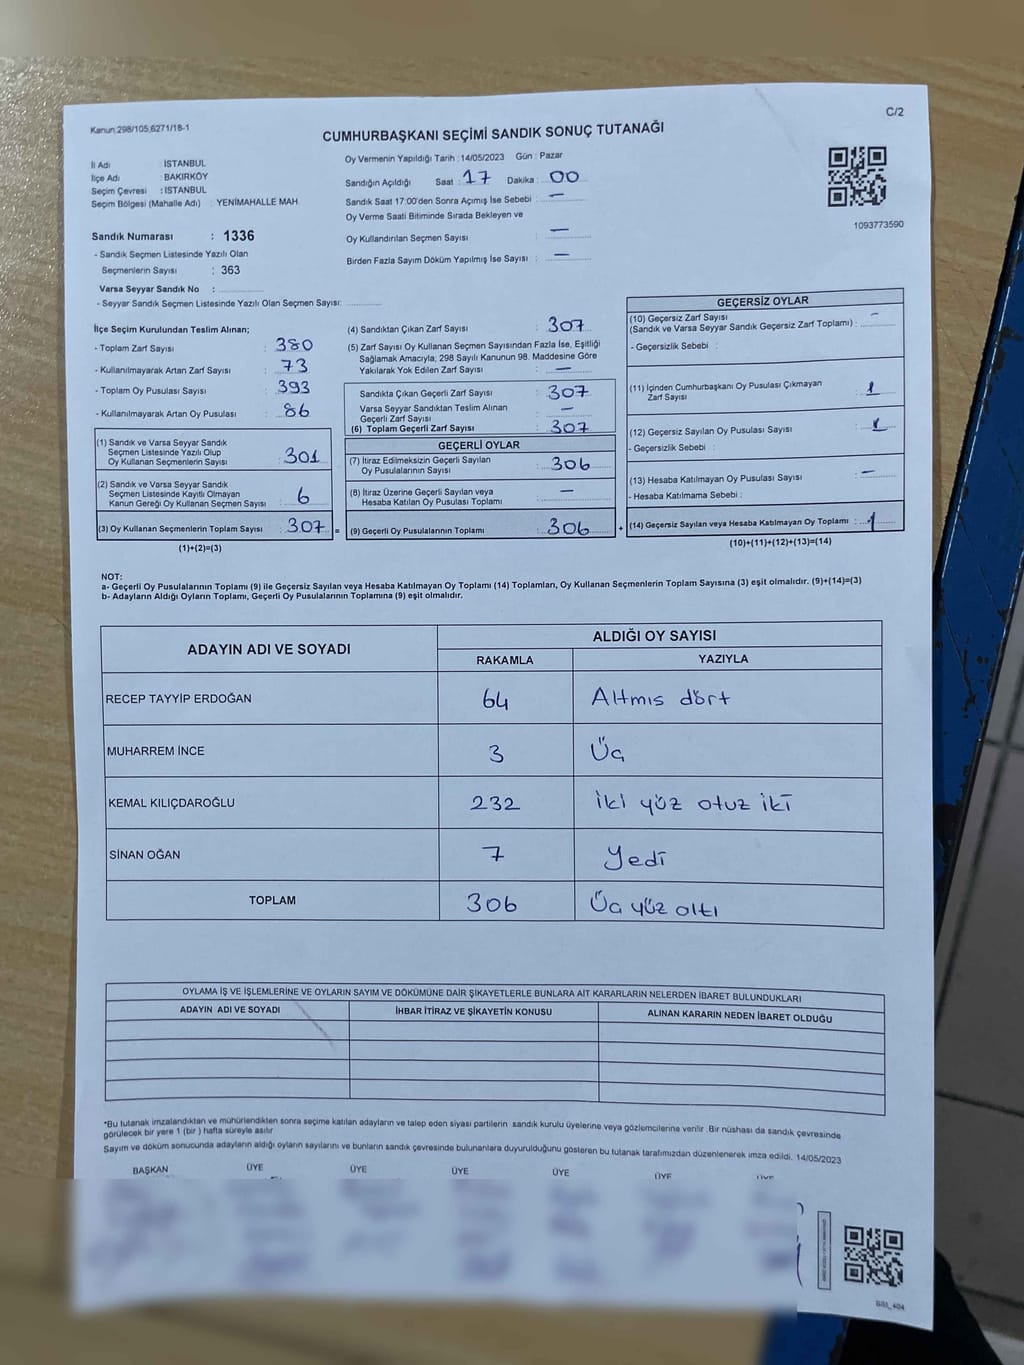 Kanun:298/105,6271/18-1
C/2
CUMHURBAŞKANI SEÇİMİ SANDIK SONUÇ TUTANAĞI
İli Adı : İSTANBUL
İlçe Adı : BAKIRKÖY
Seçim Çevresi : İSTANBUL
Seçim Bölgesi (Mahalle Adı) : YENİMAHALLE MAH.
Sandık Numarası : 1336
- Sandık Seçmen Listesinde Yazılı Olan
Seçmenlerin Sayısı : 363
Varsa Seyyar Sandık No :
- Seyyar Sandık Seçmen Listesinde Yazılı Olan Seçmen Sayısı:
Oy Vermenin Yapıldığı Tarih : 14/05/2023 Gün : Pazar
Sandığın Açıldığı Saat : 17 Dakika : 00
Sandık Saat 17:00'den Sonra Açımış İse Sebebi : —
Oy Verme Saati Bitiminde Sırada Bekleyen ve
Oy Kullandırılan Seçmen Sayısı : —
Birden Fazla Sayım Döküm Yapılmış İse Sayısı : —
1093773590
İlçe Seçim Kurulundan Teslim Alınan;
- Toplam Zarf Sayısı : 380
- Kullanılmayarak Artan Zarf Sayısı : 73
- Toplam Oy Pusulası Sayısı : 393
- Kullanılmayarak Artan Oy Pusulası : 86
(1) Sandık ve Varsa Seyyar Sandık
Seçmen Listesinde Yazılı Olup
Oy Kullanan Seçmenlerin Sayısı : 301
(2) Sandık ve Varsa Seyyar Sandık
Seçmen Listesinde Kayıtlı Olmayan
Kanun Gereği Oy Kullanan Seçmen Sayısı : 6
(3) Oy Kullanan Seçmenlerin Toplam Sayısı : 307 =
(1)+(2)=(3)
(4) Sandıktan Çıkan Zarf Sayısı : 307
(5) Zarf Sayısı Oy Kullanan Seçmen Sayısından Fazla İse, Eşitliği
Sağlamak Amacıyla; 298 Sayılı Kanunun 98. Maddesine Göre
Yakılarak Yok Edilen Zarf Sayısı : —
Sandıkta Çıkan Geçerli Zarf Sayısı : 307
Varsa Seyyar Sandıktan Teslim Alınan
Geçerli Zarf Sayısı : —
(6) Toplam Geçerli Zarf Sayısı : 307
GEÇERLİ OYLAR
(7) İtiraz Edilmeksizin Geçerli Sayılan
Oy Pusulalarının Sayısı : 306
(8) İtiraz Üzerine Geçerli Sayılan veya
Hesaba Katılan Oy Pusulası Toplamı : —
(9) Geçerli Oy Pusulalarının Toplamı : 306 +
GEÇERSİZ OYLAR
(10) Geçersiz Zarf Sayısı
(Sandık ve Varsa Seyyar Sandık Geçersiz Zarf Toplamı) : —
- Geçersizlik Sebebi :
(11) İçinden Cumhurbaşkanı Oy Pusulası Çıkmayan
Zarf Sayısı : 1
(12) Geçersiz Sayılan Oy Pusulası Sayısı :
- Geçersizlik Sebebi :
(13) Hesaba Katılmayan Oy Pusulası Sayısı : —
- Hesaba Katılmama Sebebi :
(14) Geçersiz Sayılan veya Hesaba Katılmayan Oy Toplamı : 1
(10)+(11)+(12)+(13)=(14)
NOT:
a- Geçerli Oy Pusulalarının Toplamı (9) ile Geçersiz Sayılan veya Hesaba Katılmayan Oy Toplamı (14) Toplamları, Oy Kullanan Seçmenlerin Toplam Sayısına (3) eşit olmalıdır. (9)+(14)=(3)
b- Adayların Aldığı Oyların Toplamı, Geçerli Oy Pusulalarının Toplamına (9) eşit olmalıdır.
ADAYIN ADI VE SOYADI
ALDIĞI OY SAYISI
RAKAMLA YAZIYLA
RECEP TAYYİP ERDOĞAN 64 Altmıs dört
MUHARREM İNCE 3 Üç
KEMAL KILIÇDAROĞLU 232 iki yüz otuz iki
SİNAN OĞAN 7 Yedi
TOPLAM 306 Üç yüz altı
OYLAMA İŞ VE İŞLEMLERİNE VE OYLARIN SAYIM VE DÖKÜMÜNE DAİR ŞİKAYETLERLE BUNLARA AİT KARARLARIN NELERDEN İBARET BULUNDUKLARI
ADAYIN ADI VE SOYADI İHBAR İTİRAZ VE ŞİKAYETİN KONUSU ALINAN KARARIN NEDEN İBARET OLDUĞU
*Bu tutanak imzalandıktan ve mühürlendikten sonra seçime katılan adayların ve talep eden siyasi partilerin sandık kurulu üyelerine veya gözlemcilerine verilir. Bir nüshası da sandık çevresinde
görülecek bir yere 1 (bir) hafta süreyle asılır.
Sayım ve döküm sonucunda adayların aldığı oyların sayılarını ve bunların sandık çevresinde bulunanlara duyurulduğunu gösteren bu tutanak tarafımızdan düzenlenerek imza edildi. 14/05/2023
BAŞKAN ÜYE ÜYE ÜYE ÜYE ÜYE ÜYE